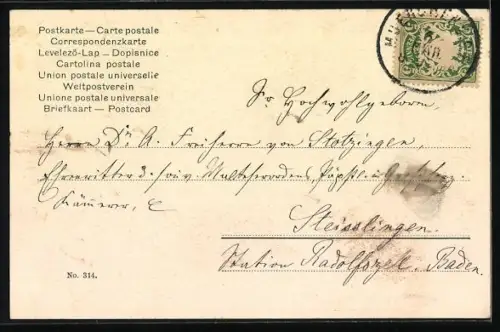 Postkarte — Carte postale
Correspondenzkarte
Levelező-Lap — Dopisnice
Cartolina postale
Union postale universelle
Weltpostverein
Unione postale universale
Briefkaart — Postcard
MUENCHEN
Sr. Hochwohlgeboren,
Herrn Dr. A. Freiherrn von Stotzingen,
Ehrenritter d. souv. Malteserordens, Päpstl.
Kämmerer,
Steisslingen.
Station Radolfszell. Baden.
No. 314.